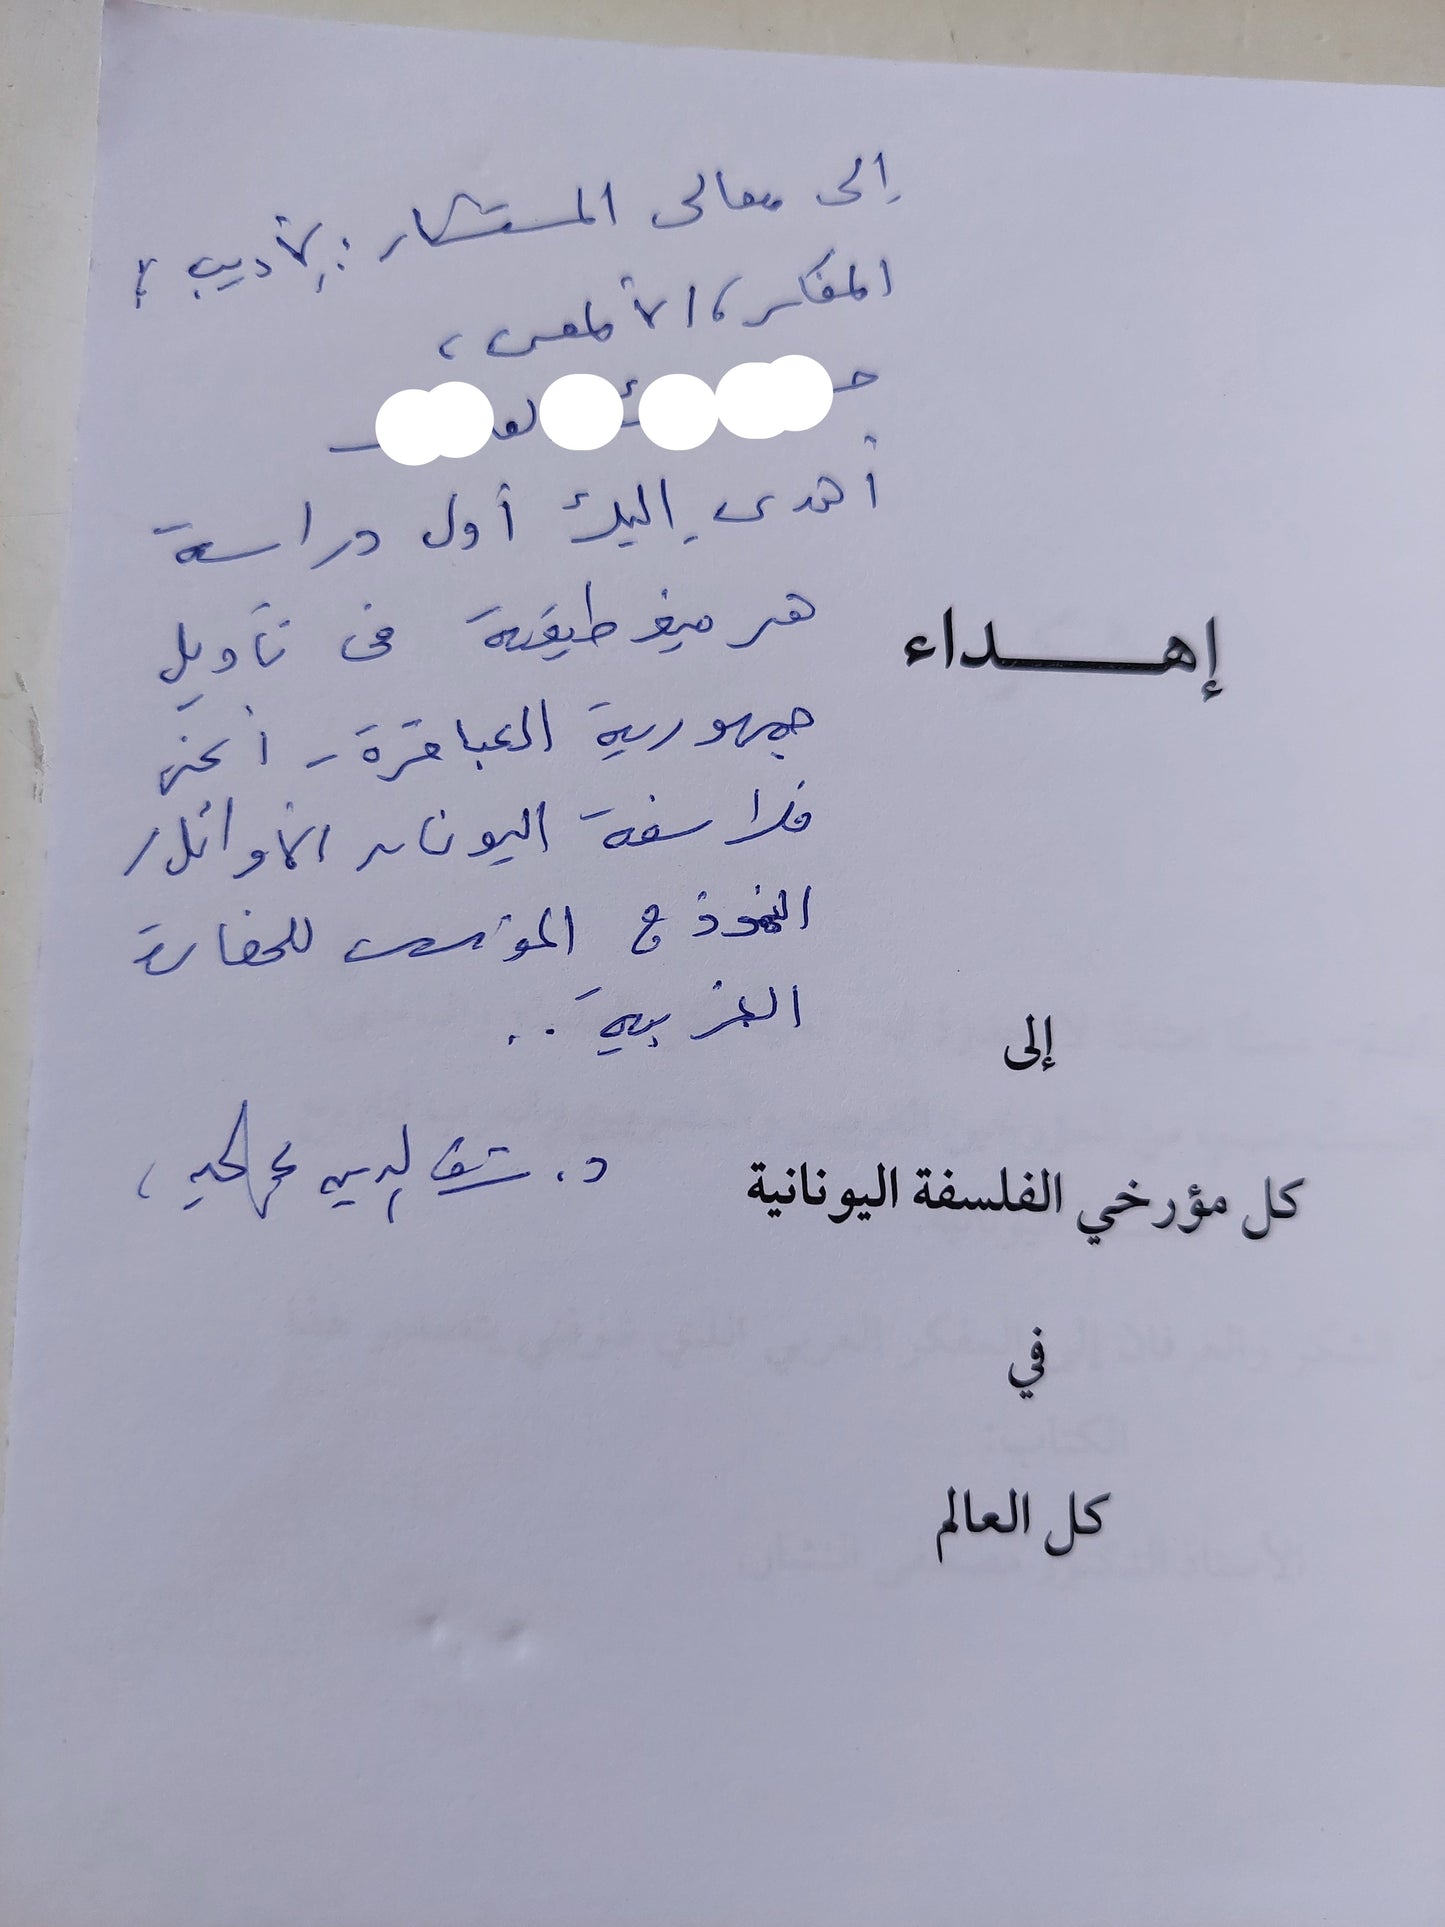 إلى معالى المستشار: الأديب،
المفكر، الألمعى،
أهدى إليك أول دراسة
هرمينوطيقية فى تأويل
جمهورية العباقرة - أعنى
فلاسفة اليونان الأوائل /
النموذج المؤسس للحضارة
الغربية ..
د. شرف الدين عبد الحميد،
إهـــــداء
إلى
كل مؤرخي الفلسفة اليونانية
في
كل العالم